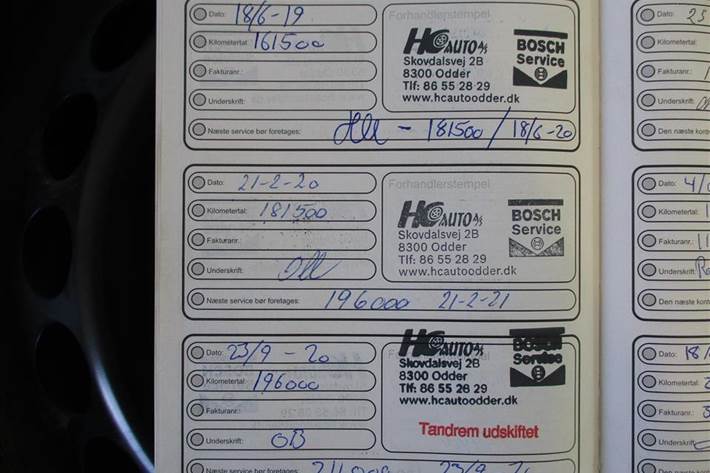 Dato: 18/6-19
Kilometertal: 161500
Fakturanr.:
Underskrift:
Næste service bør foretages: 181500 / 18/6-20
Forhandlerstempel
HC AUTO A/S
Skovdalsvej 2B
8300 Odder
Tlf: 86 55 28 29
www.hcautoodder.dk
BOSCH
Service
Dato: 21-2-20
Kilometertal: 181500
Fakturanr.:
Underskrift:
Næste service bør foretages: 196000 21-2-21
Forhandlerstempel
HC AUTO A/S
Skovdalsvej 2B
8300 Odder
Tlf: 86 55 28 29
www.hcautoodder.dk
BOSCH
Service
Dato: 23/9-20
Kilometertal: 196000
Fakturanr.:
Underskrift: OB
Næste service bør foretages:
HC AUTO A/S
Skovdalsvej 2B
8300 Odder
Tlf: 86 55 28 29
www.hcautoodder.dk
BOSCH
Service
Tandrem udskiftet
Dato:
Kilometertal:
Fakturanr.:
Underskrift:
Den næste kont
Dato: 4/
Kilometertal:
Fakturanr.:
Underskrift:
Den næste kon
Dato: 18/
Kilometertal:
Fakturanr.:
Underskrift: